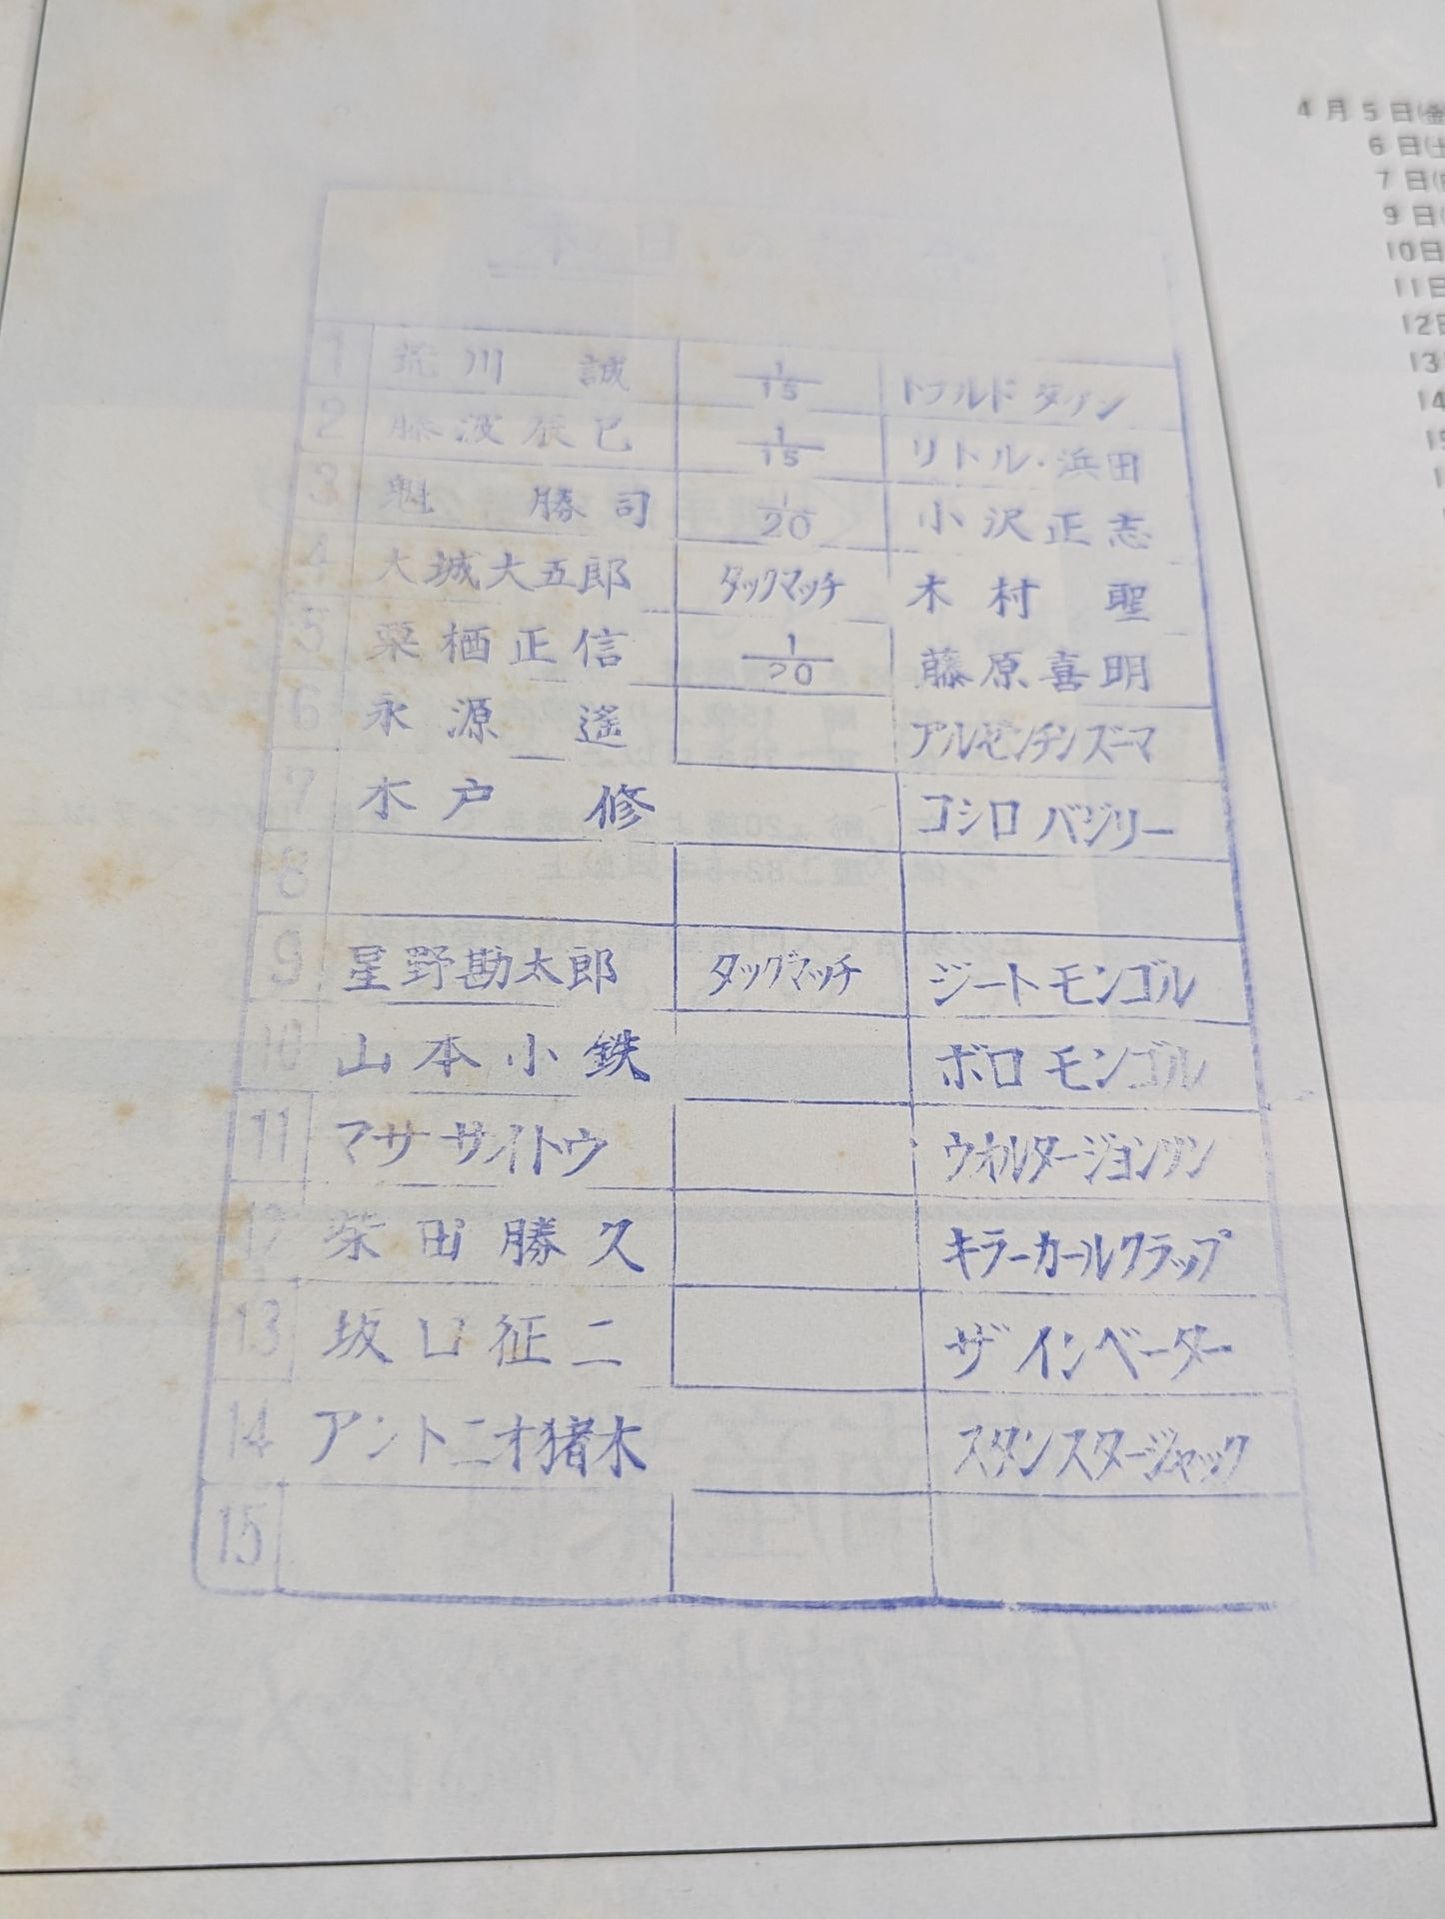 4月5日(金
6日(土
7日(
9日(
10日
11日
12日
13
14
日本
1 荒川 誠 1/15 ドナルド タケシ
2 藤波辰巳 1/15 リトル・浜田
3 魁 勝司 1/20 小沢正志
4 大城大五郎 タッグマッチ 木村 聖
5 栗栖正信 1/20 藤原喜明
6 永源 遙 アルゼンチンズーマ
7 木戸 修 コシロ バジリー
8
9 星野勘太郎 タッグマッチ ジート モンゴル
10 山本小鉄 ボロ モンゴル
11 マサ サイトウ ウォルタージョンソン
12 柴田勝久 キラーカールクラップ
13 坂口征二 ザ インベーター
14 アントニオ猪木 スタン スタージャック
15